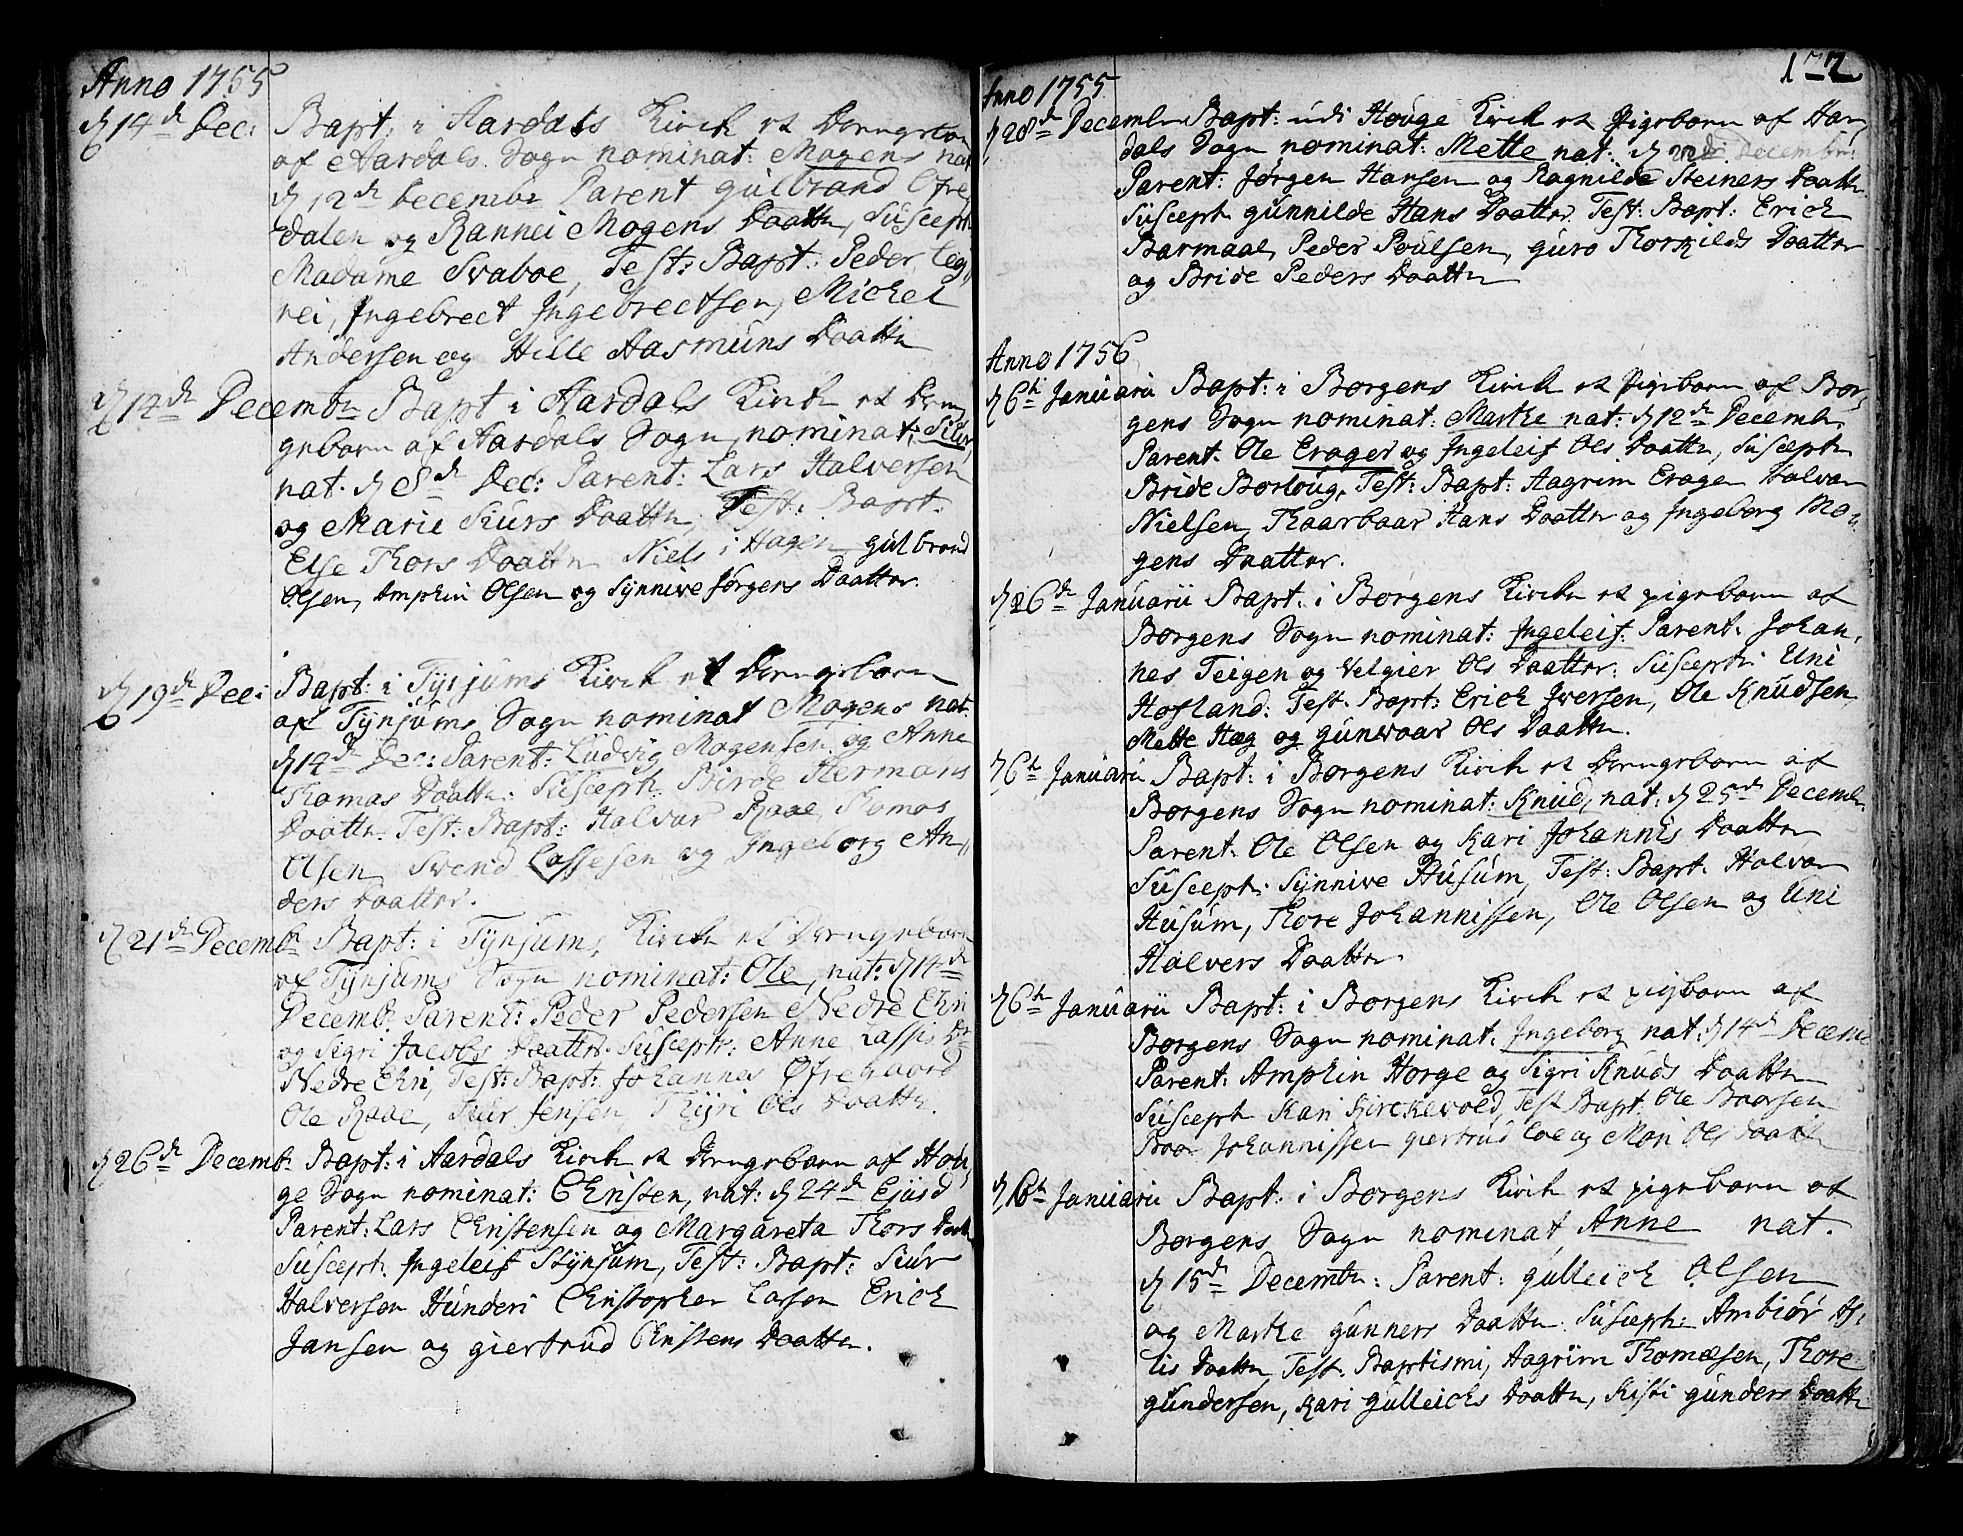 Anno 1755
d 14 de Dec: Bapt: i Aardals Kirch et Drengebarn
af Aardals Sogn nominat: Mogens nat
d 12 de December Parent gulbrand Øfre
dalen og Rannei Mogens Daatter, Suscept
Madame Svaboe, Test: Bapt: Peder Leg,,
rei, Ingebrect Ingebrectsen, Michel
Andersen og Hille Aasmuns Daatter
d 14 de Decembr Bapt i Aardals Kirch et Dren,
gebarn af Aardals Sogn nominat: Siur
nat. d 8 de Dec: Parent: Lars Halversen
og Marie Siurs Daatter Test: Bapt.
Else Thors Daatter Niels i Hagen gulbrand
Olsen, Amphin Olsen og Synnive Jørgens Daatter.
d 19 de Dec: Bapt: i Tynjums Kirch et Drengebarn
af Tynjums Sogn nominat Mogens nat.
d 14 de Dec: Parent: Ludvig Mogensen og Anne
Thomas Daatter: Suscept: Birde Hermans
Daatter. Test: Bapt: Halvar Raae, Thomas
Olsen, Svend Lassesen og Ingeborg An,,
ders Daatter.
d 21 de Decembr Bapt: i Tynjums Kirch et Drengebarn
af Tynjums Sogn nominat: Ole, nat: d 14 de
Decembr Parent: Peder Pedersen Nedre Ehri
og Sigri Jacobs Daatter. Suscept: Anne Lassis Dr
Nedre Ehri, Test: Bapt: Johannes Øfregaard
Ole Raae, Siur Jensen, Thyri Ols Daatter.
d 26 de Decembr Bapt: i Aardals Kirch et Drengebarn af Hou,
ge Sogn nominat: Christen, nat: d 24 de Ejusd
Parent: Lars Christensen og Margareta Thors Daatter
Suscept. Ingeleif Stynjum, Test: Bapt: Siur
Halversen Hunderi Christopher Larsen Erich
Jansen og giertrud Christens Daatter.
Anno 1755
d 28 de December Bapt: udi Houge Kirch et Pigebarn af Har,
dals Sogn nominat: Mette nat: d 22 de Decembr:
Parent: Jørgen Hansen og Ragnilde Steiners Daatter
Suscept gunnilde Hans Daatter. Test: Bapt: Erich
Barmaal, Peder Poulsen, guro Thorkilds Daatter
og Bride Peders Daatter
Anno 1756
d 6 te Januarii Bapt: i Borgens Kirch et Pigebarn af Bor,
gens Sogn nominat: Marthe nat: d 12 de Decembr.
Parent. Ole Erager og Ingeleif Ols Daatter, Suscept
Bride Borloug, Test: Bapt: Aagrim Erager Halvar
Nielsen, Thaarbaar Hans Daatter og Ingeborg Mo,
gens Daatter.
d 6 te Januarii Bapt: i Borgens Kirch et pigebarn af
Borgens Sogn nominat: Ingeleif: Parent: Johan,
nes Teigen og Velgier Ols Daatter: Suscept: Uni
Hofland: Test: Bapt: Erich Iversen, Ole Knudsen,
Mette Hæg og gunvaar Ols Daatter.
d 6 te Januarii Bapt: i Borgens Kirch et Drengebarn af
Borgens Sogn nominat: Knud, nat: d 25 de Decembr
Parent. Ole Olsen og Kari Johannis Daatter
Suscept: Synnive Husum, Test: Bapt: Halvar
Husum, Thore Johannissen, Ole Olsen og Uni
Halvers Daatter.
d 6 te Januarii Bapt: i Borgens Kirch et pigbarn af
Borgens Sogn nominat: Ingeborg nat: d 14 d Decem
Parent: Amphin Horge og Sigri Knuds Daatter
Suscept Kari Kirckevold, Test Bapt: Ole Baarsen
Baar Johannissen giertrud Loe og Mari Ols Daatter
d 6 te Januarii Bapt: i Borgens Kirch et pigebarn af
Borgens Sogn nominat Anne nat.
d 15 de Decembr: Parent: gulleich Olsen
og Marthe gunners Daatter: Suscept: Ambiør As,
lis Daatter, Test: Baptismi, Aagrim Thomæsen, Thore
gundersen, Kari gulleichs Daatter, Kisti gunders Daatter